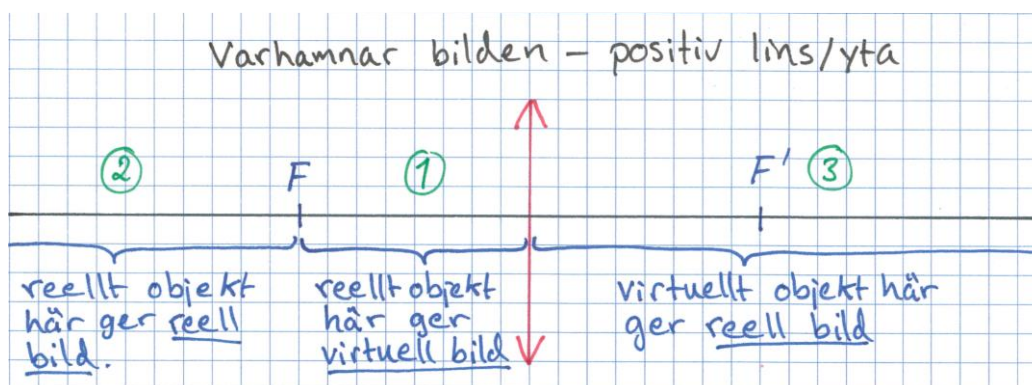 Varhamnar bilden – positiv lins/yta
2 F 1 F' 3
reellt objekt
här ger reell
bild.
reellt objekt
här ger
virtuell bild
virtuellt objekt här
ger reell bild